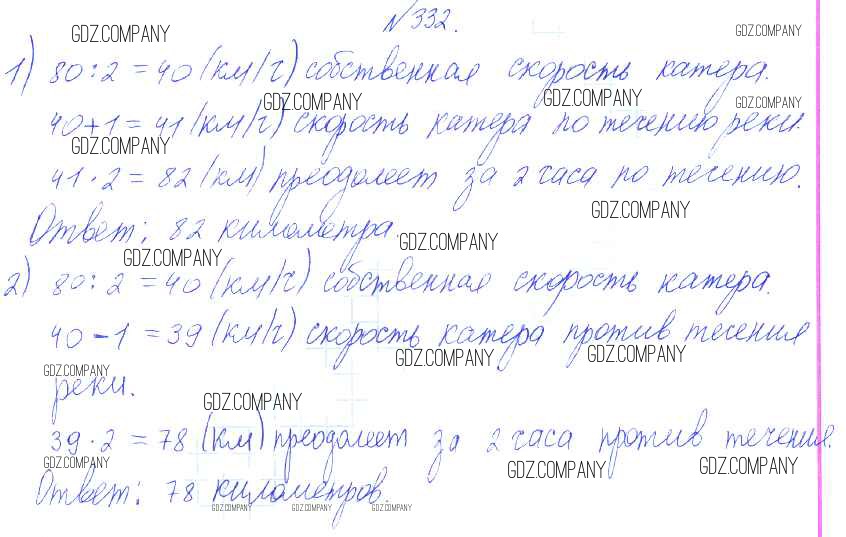 №332.
GDZ.COMPANY GDZ.COMPANY
1) 80:2=40 (км/ч) собственная скорость катера.
GDZ.COMPANY GDZ.COMPANY GDZ.COMPANY
40+1=41 (км/ч) скорость катера по течению реки.
GDZ.COMPANY
41·2=82 (км) преодолеет за 2 часа по течению.
GDZ.COMPANY
Ответ: 82 километра.
GDZ.COMPANY GDZ.COMPANY
2) 80:2=40 (км/ч) собственная скорость катера.
40-1=39 (км/ч) скорость катера против течения
GDZ.COMPANY GDZ.COMPANY GDZ.COMPANY
реки.
GDZ.COMPANY
39·2=78 (км) преодолеет за 2 часа против течения.
GDZ.COMPANY GDZ.COMPANY GDZ.COMPANY
Ответ: 78 километров.
GDZ.COMPANY GDZ.COMPANY GDZ.COMPANY